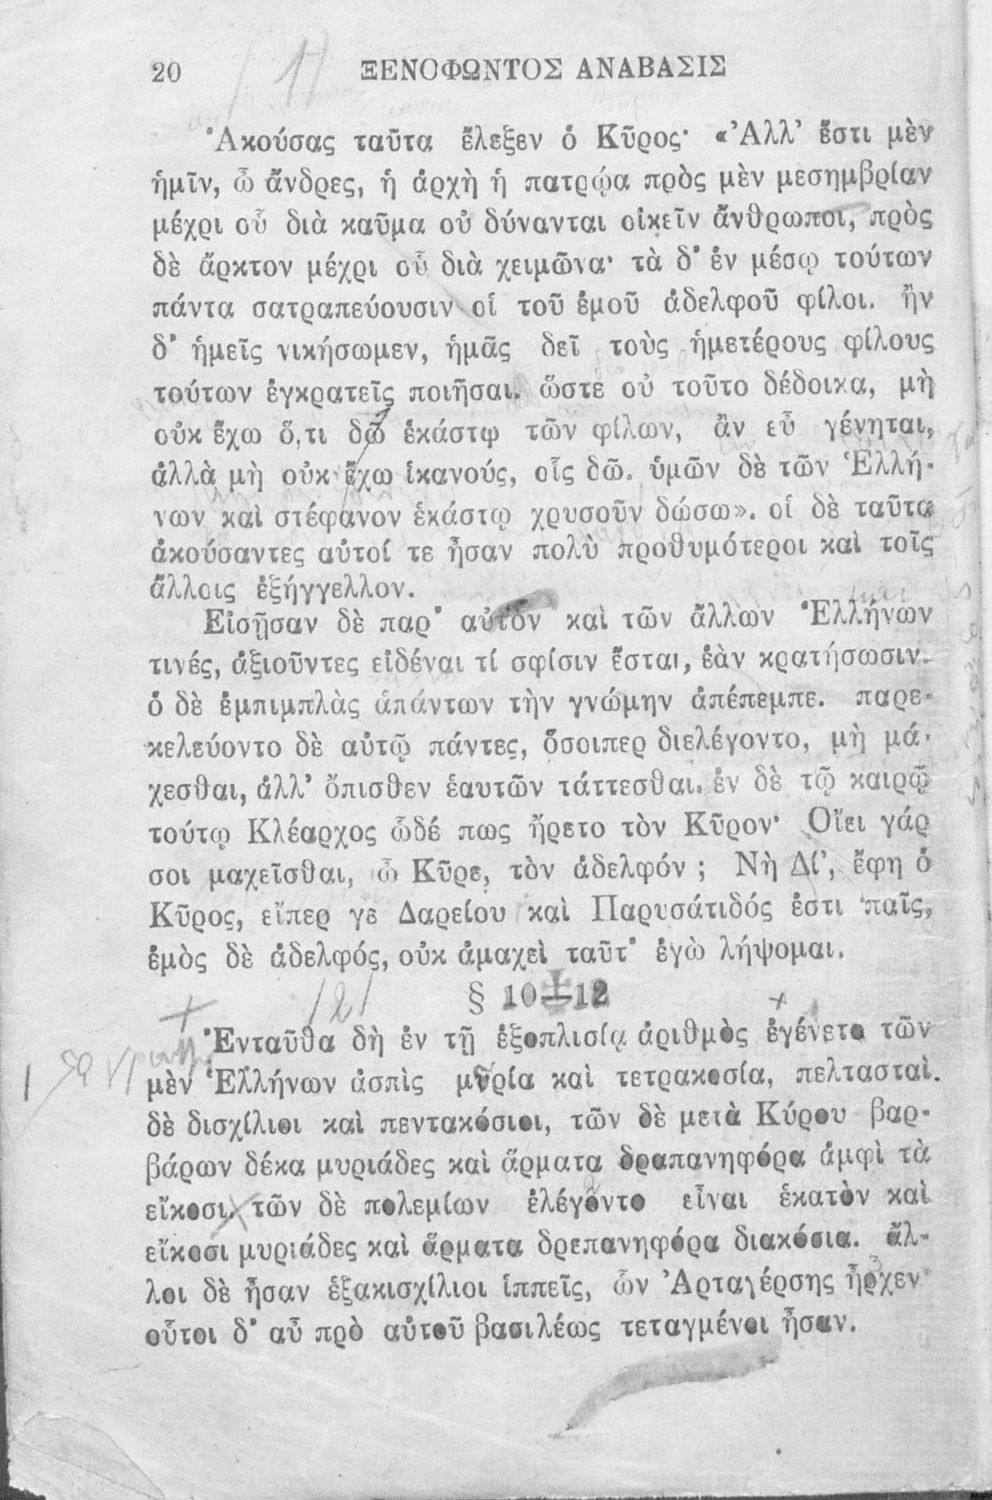 20 ΞΕΝΟΦΩΝΤΟΣ ΑΝΑΒΑΣΙΣ
Ἀκούσας ταῦτα ἔλεξεν ὁ Κῦρος· «Ἀλλ’ ἔστι μὲν
ἡμῖν, ὦ ἄνδρες, ἡ ἀρχὴ ἡ πατρῴα πρὸς μὲν μεσημβρίαν
μέχρι οὗ διὰ καῦμα οὐ δύνανται οἰκεῖν ἄνθρωποι, πρὸς
δὲ ἄρκτον μέχρι οὗ διὰ χειμῶνα· τὰ δ’ ἐν μέσῳ τούτων
πάντα σατραπεύουσιν οἱ τοῦ ἐμοῦ ἀδελφοῦ φίλοι. ἢν
δ’ ἡμεῖς νικήσωμεν, ἡμᾶς δεῖ τοὺς ἡμετέρους φίλους
τούτων ἐγκρατεῖς ποιῆσαι. ὥστε οὐ τοῦτο δέδοικα, μὴ
οὐκ ἔχω ὅ,τι δῶ ἑκάστῳ τῶν φίλων, ἂν εὖ γένηται,
ἀλλὰ μὴ οὐκ ἔχω ἱκανούς, οἷς δῶ. ὑμῶν δὲ τῶν Ἑλλή-
νων καὶ στέφανον ἑκάστῳ χρυσοῦν δώσω». οἱ δὲ ταῦτα
ἀκούσαντες αὐτοί τε ἦσαν πολὺ προθυμότεροι καὶ τοῖς
ἄλλοις ἐξήγγελλον.
Εἰσῇσαν δὲ παρ’ αὐτὸν καὶ τῶν ἄλλων Ἑλλήνων
τινές, ἀξιοῦντες εἰδέναι τί σφίσιν ἔσται, ἐὰν κρατήσωσιν.
ὁ δὲ ἐμπιμπλὰς ἁπάντων τὴν γνώμην ἀπέπεμπε. παρε-
κελεύοντο δὲ αὐτῷ πάντες, ὅσοιπερ διελέγοντο, μὴ μά-
χεσθαι, ἀλλ’ ὄπισθεν ἑαυτῶν τάττεσθαι. ἐν δὲ τῷ καιρῷ
τούτῳ Κλέαρχος ὧδέ πως ἤρετο τὸν Κῦρον· Οἴει γάρ
σοι μαχεῖσθαι, ὦ Κῦρε, τὸν ἀδελφόν ; Νὴ Δί’, ἔφη ὁ
Κῦρος, εἴπερ γε Δαρείου καὶ Παρυσάτιδός ἐστι παῖς,
ἐμὸς δὲ ἀδελφός, οὐκ ἀμαχεὶ ταῦτ’ ἐγὼ λήψομαι.
§ 10—12
Ἐνταῦθα δὴ ἐν τῇ ἐξοπλισίᾳ ἀριθμὸς ἐγένετο τῶν
μὲν Ἑλλήνων ἀσπὶς μυρία καὶ τετρακοσία, πελτασταὶ
δὲ δισχίλιοι καὶ πεντακόσιοι, τῶν δὲ μετὰ Κύρου βαρ-
βάρων δέκα μυριάδες καὶ ἅρματα δραπανηφόρα ἀμφὶ τὰ
εἴκοσι. τῶν δὲ πολεμίων ἐλέγοντο εἶναι ἑκατὸν καὶ
εἴκοσι μυριάδες καὶ ἅρματα δρεπανηφόρα διακόσια. ἄλ-
λοι δὲ ἦσαν ἑξακισχίλιοι ἱππεῖς, ὧν Ἀρταγέρσης ἦρχεν·
οὗτοι δ’ αὖ πρὸ αὐτοῦ βασιλέως τεταγμένοι ἦσαν.